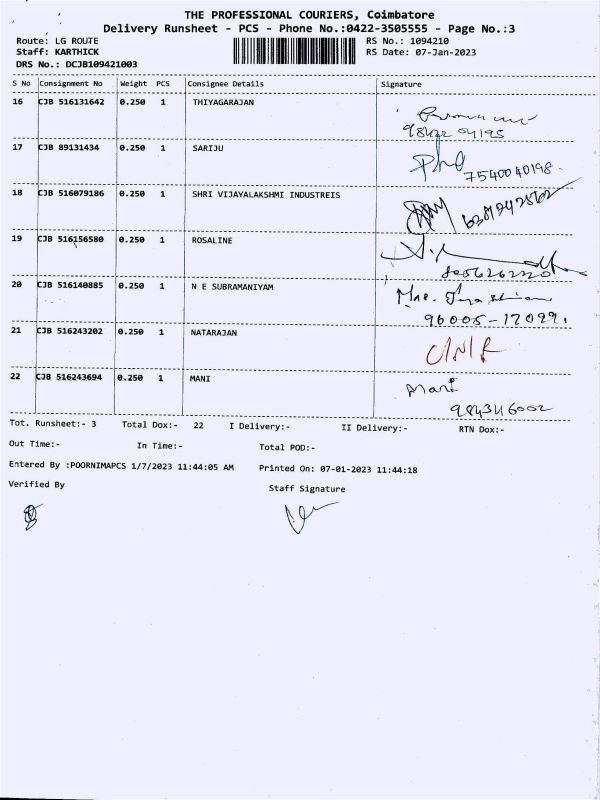 THE PROFESSIONAL COURIERS, Coimbatore
Delivery Runsheet - PCS - Phone No.:0422-3505555 - Page No.:3
Route: LG ROUTE RS No.: 1094210
Staff: KARTHICK RS Date: 07-Jan-2023
DRS No.: DCJB109421003
S No Consignment No Weight PCS Consignee Details Signature
16 CJB 516131642 0.250 1 THIYAGARAJAN
17 CJB 89131434 0.250 1 SARIJU
7540040198.
18 CJB 516079186 0.250 1 SHRI VIJAYALAKSHMI INDUSTREIS
19 CJB 516156580 0.250 1 ROSALINE
20 CJB 516140885 0.250 1 N E SUBRAMANIYAM
96005-17029.
21 CJB 516243202 0.250 1 NATARAJAN
22 CJB 516243694 0.250 1 MANI
Mani
9843116002
Tot. Runsheet:- 3 Total Dox:- 22 I Delivery:- II Delivery:- RTN Dox:-
Out Time:- In Time:- Total POD:-
Entered By :POORNIMAPCS 1/7/2023 11:44:05 AM Printed On: 07-01-2023 11:44:18
Verified By Staff Signature